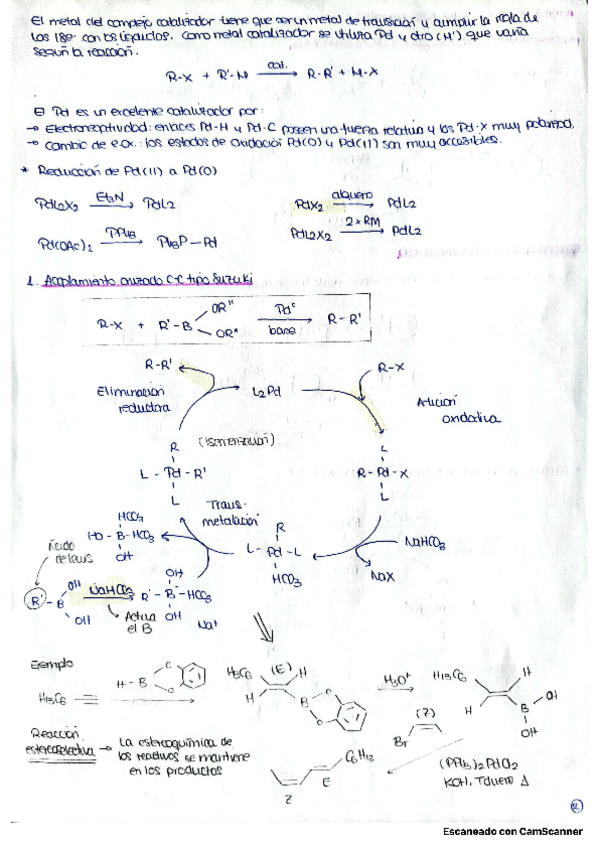 El metal del complejo catalizador tiene que ser un metal de transición y cumplir la regla de
los 18e⁻ con los líquidos. Como metal catalizador se utiliza Pd y otro (M') que varía
según la reacción.
R-X + R'-M cat. → R-R' + M-X
El Pd es un excelente catalizador por:
→ Electronegatividad: enlaces Pd-H y Pd-C poseen una fuerza relativa y los Pd-X muy polarizad.
→ Cambio de e.ox.: los estados de oxidación Pd(0) y Pd(II) son muy accesibles.
* Reducción de Pd(II) a Pd(0)
PdL2X2 Et3N → PdL2
PdX2 alqueno → PdL2
Pd(OAc)2 PPh3 → Ph3P-Pd
PdL2X2 2×RM → PdL2
1. Acoplamiento cruzado C-C tipo Suzuki
R-X + R'-B OR" OR" Pd⁰ base → R-R'
R-R'
R-X
Eliminación
reductora
L2Pd
Adición
oxidativa
(isomerización)
R
L - Pd - R'
L
L
R - Pd - X
L
Trans-
metalación
HCO3
HO - B - HCO3
OH
R
L - Pd - L
HCO3
NaHCO3
NaX
Ácido
de Lewis
R' - B OH OH
NaHCO3
Activa
el B
OH
R' - B - HCO3
OH
Na⁺
Ejemplo
H13C6
H - B O O
H13C6 (E) H
H B O O
H3O⁺
H13C6 H
H B OH
OH
Reacción
estereoselectiva → La estereoquímica de
los reactivos se mantiene
en los productos
Br (Z)
C6H12
Z E
(PPh3)2PdCl2
KOH, Tolueno Δ
Escaneado con CamScanner